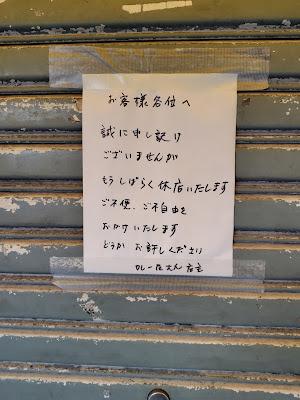 お客様各位へ
誠に申し訳け
ございませんが
もうしばらく休店いたします
ご不便、ご不自由を
おかけいたします
どうか お許しください
カレー屋さん 店主